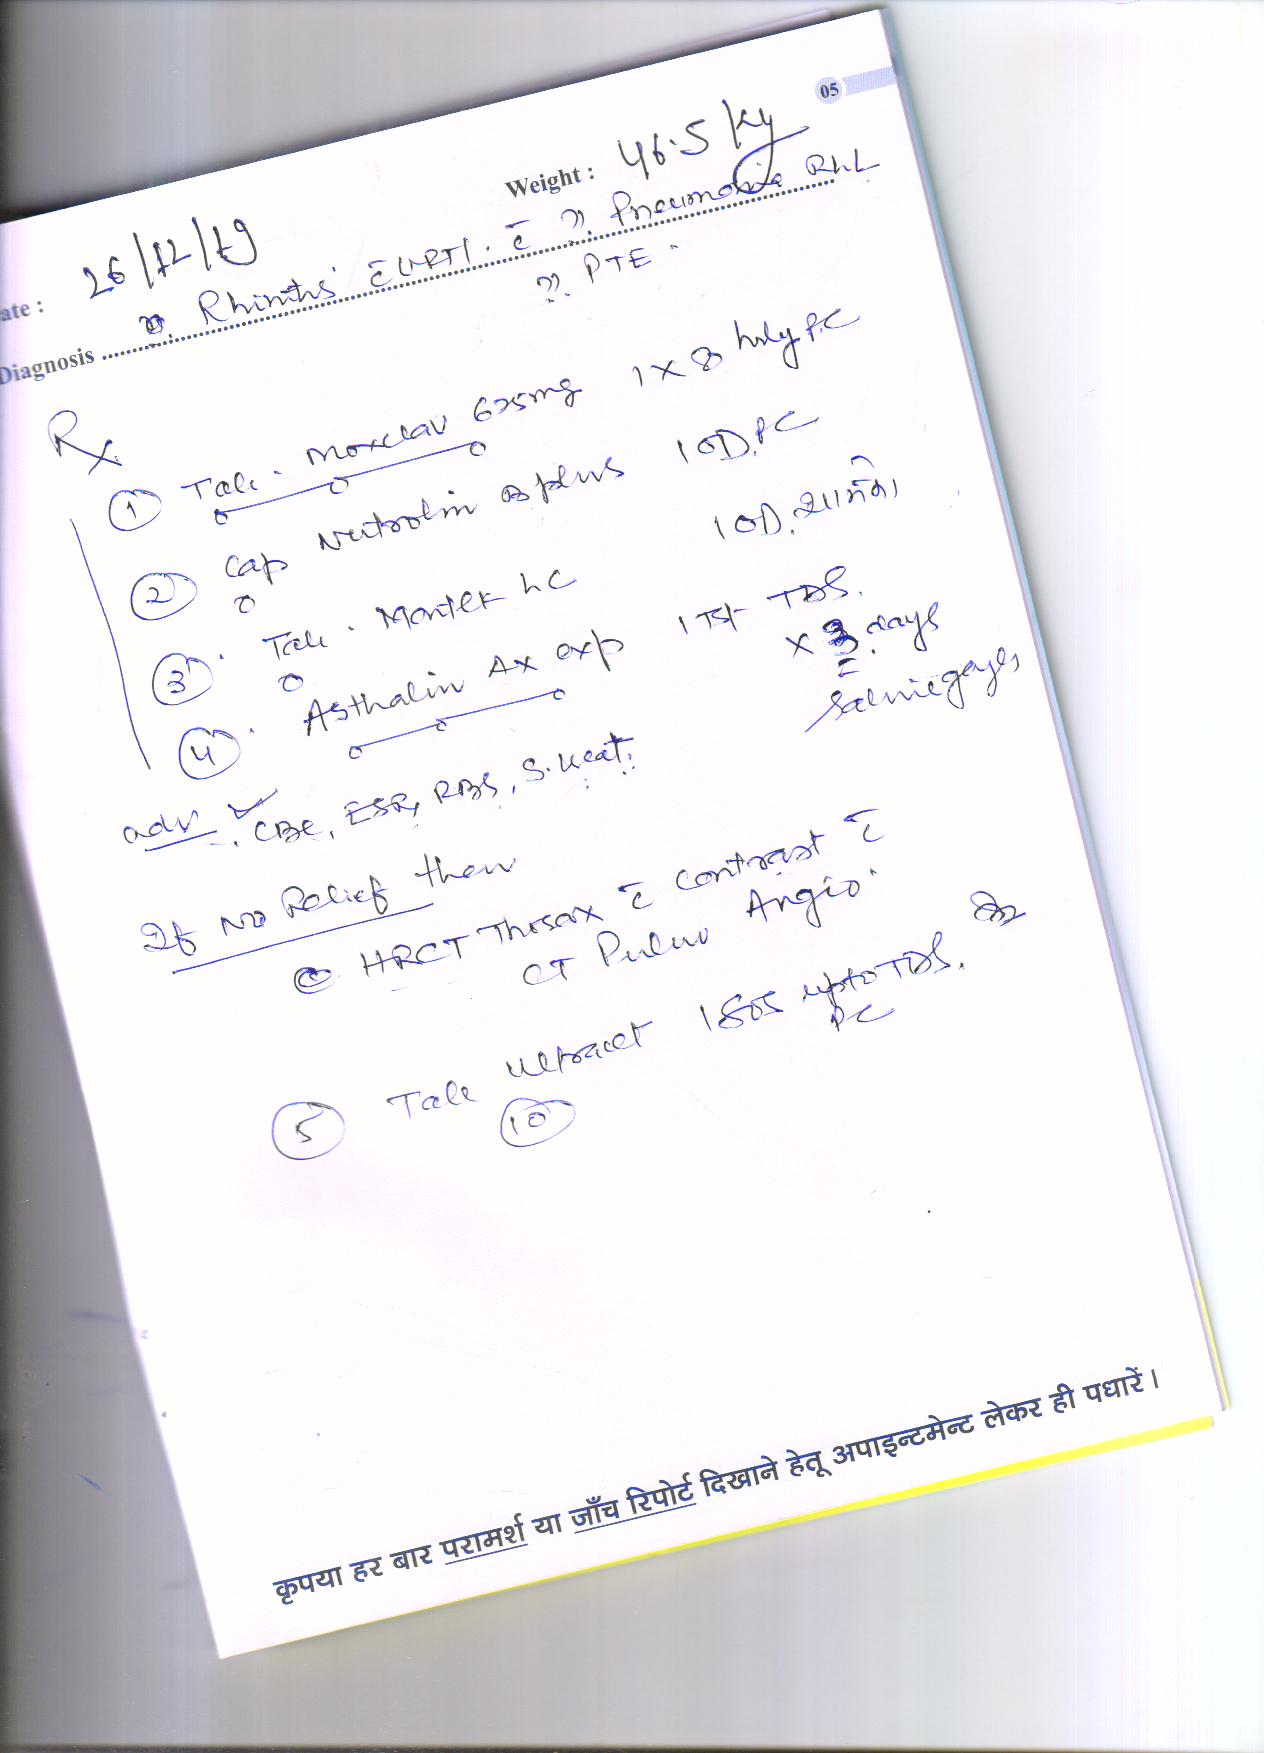 05
Weight : 46.5 kg
ate : 26/12/19
Diagnosis ?. Rhinitis c̄ URTI. c̄ ??. Pneumonia
??. PTE
Rx
① Tab. Moxclav 625mg 1 x 8 hrly P.C
② Cap Neutrolin B plus 1 OD. PC
③ Tab. Montek LC 1 OD. शाम को
④ Asthalin AX exp 1 TSF TDS.
x 3 days
c̄ Saline gargles
adv ✓ . CBC, ESR, RBS, S. Creat.
If No Relief then
HRCT Thorax c̄ contrast c̄
CT Pulmo Angio.
⑤ Tab Ultracet 1 SOS upto TDS.
PC
⑩
कृपया हर बार परामर्श या जाँच रिपोर्ट दिखाने हेतू अपाइन्टमेन्ट लेकर ही पधारें ।